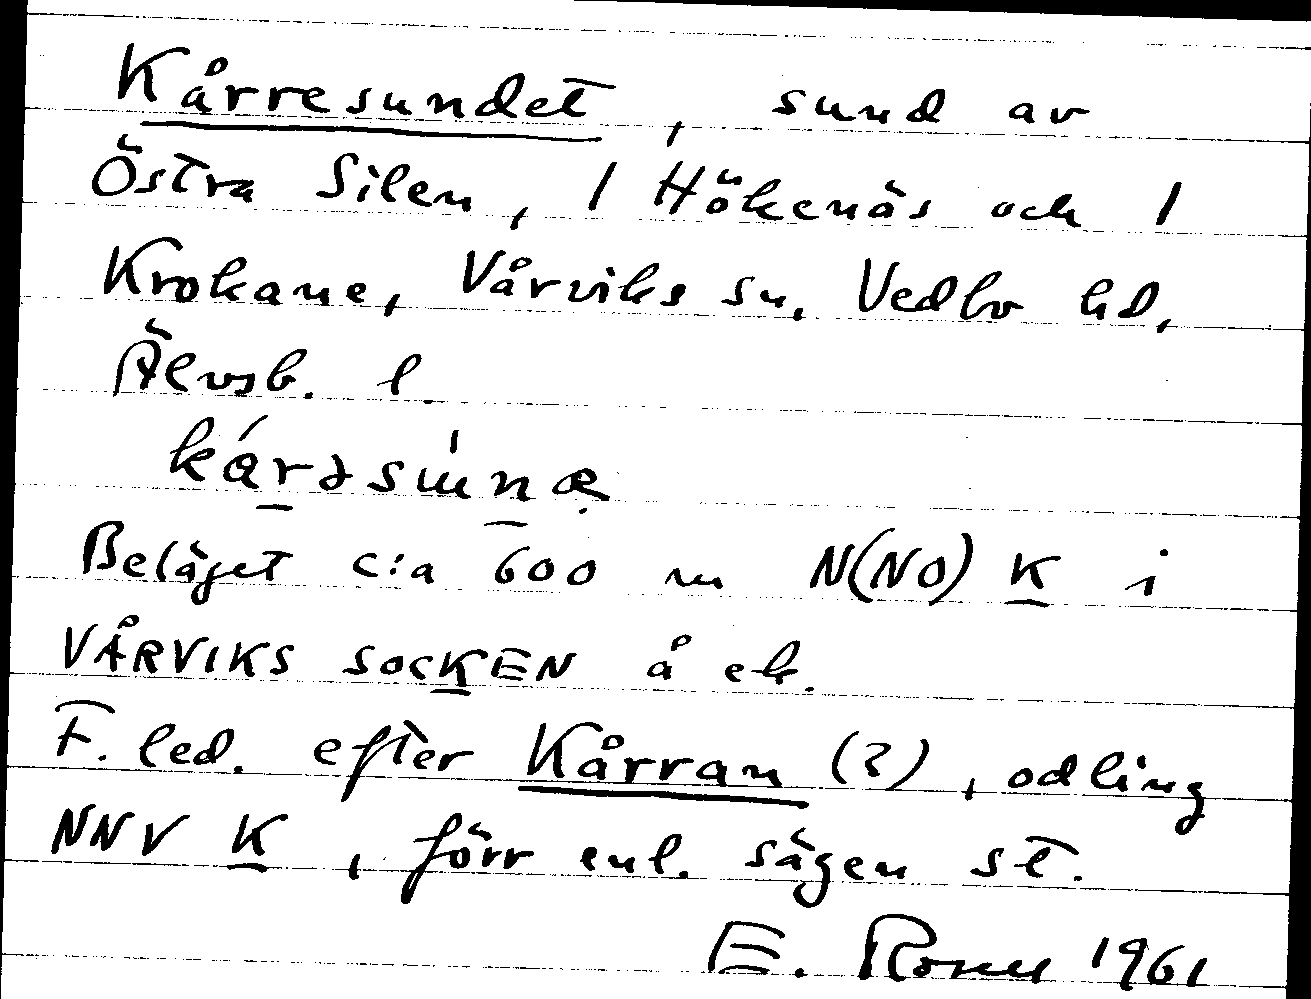 Kårresundet, sund av
Östra Silen, 1 Hökenäs och 1
Krokane, Vårviks sn, Vedbo hd,
Älvsb. l.
kárəsu̇̀næ
Beläget c:a 600 m N(NO) K i
VÅRVIKS SOCKEN å ek.
F. led. efter Kårran (?), odling
NNV K, förr enl. sägen st.
E. 1961